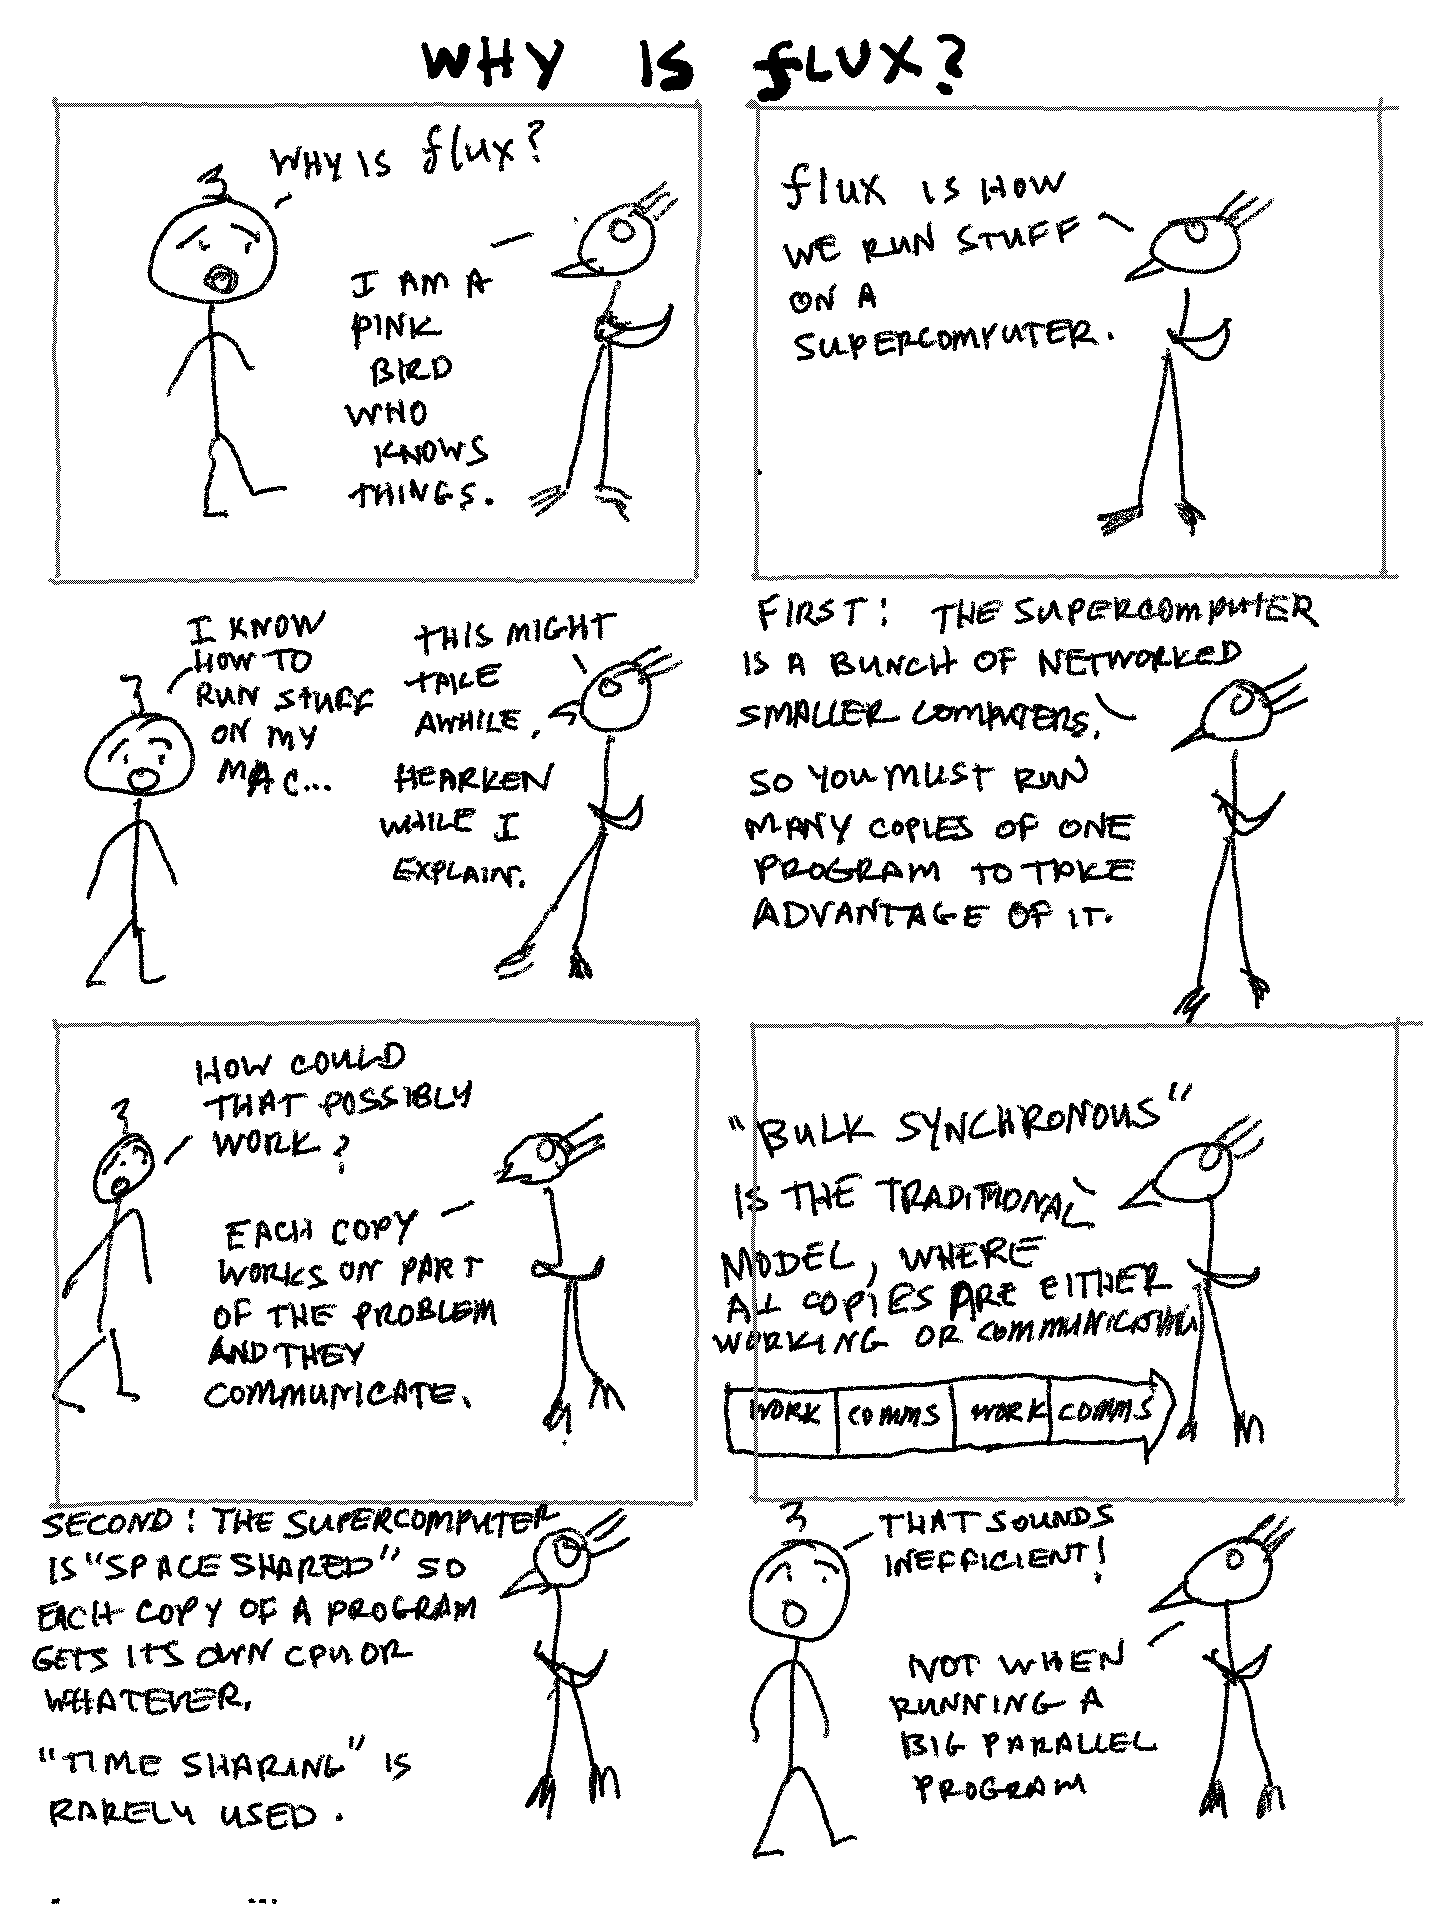 WHY IS fLUX?
WHY IS flux?
I AM A
PINK
BIRD
WHO
KNOWS
THINGS.
flux IS HOW
WE RUN STUFF
ON A
SUPERCOMPUTER.
I KNOW
HOW TO
RUN STUFF
ON MY
MAC...
THIS MIGHT
TAKE
AWHILE.
HEARKEN
WHILE I
EXPLAIN.
FIRST: THE SUPERCOMPUTER
IS A BUNCH OF NETWORKED
SMALLER COMPUTERS.
SO YOU MUST RUN
MANY COPIES OF ONE
PROGRAM TO TAKE
ADVANTAGE OF IT.
HOW COULD
THAT POSSIBLY
WORK?
EACH COPY
WORKS ON PART
OF THE PROBLEM
AND THEY
COMMUNICATE.
"BULK SYNCHRONOUS"
IS THE TRADITIONAL
MODEL, WHERE
ALL COPIES ARE EITHER
WORKING OR COMMUNICATING
WORK COMMS WORK COMMS
SECOND: THE SUPERCOMPUTER
IS "SPACE SHARED" SO
EACH COPY OF A PROGRAM
GETS ITS OWN CPU OR
WHATEVER.
"TIME SHARING" IS
RARELY USED.
THAT SOUNDS
INEFFICIENT!
NOT WHEN
RUNNING A
BIG PARALLEL
PROGRAM